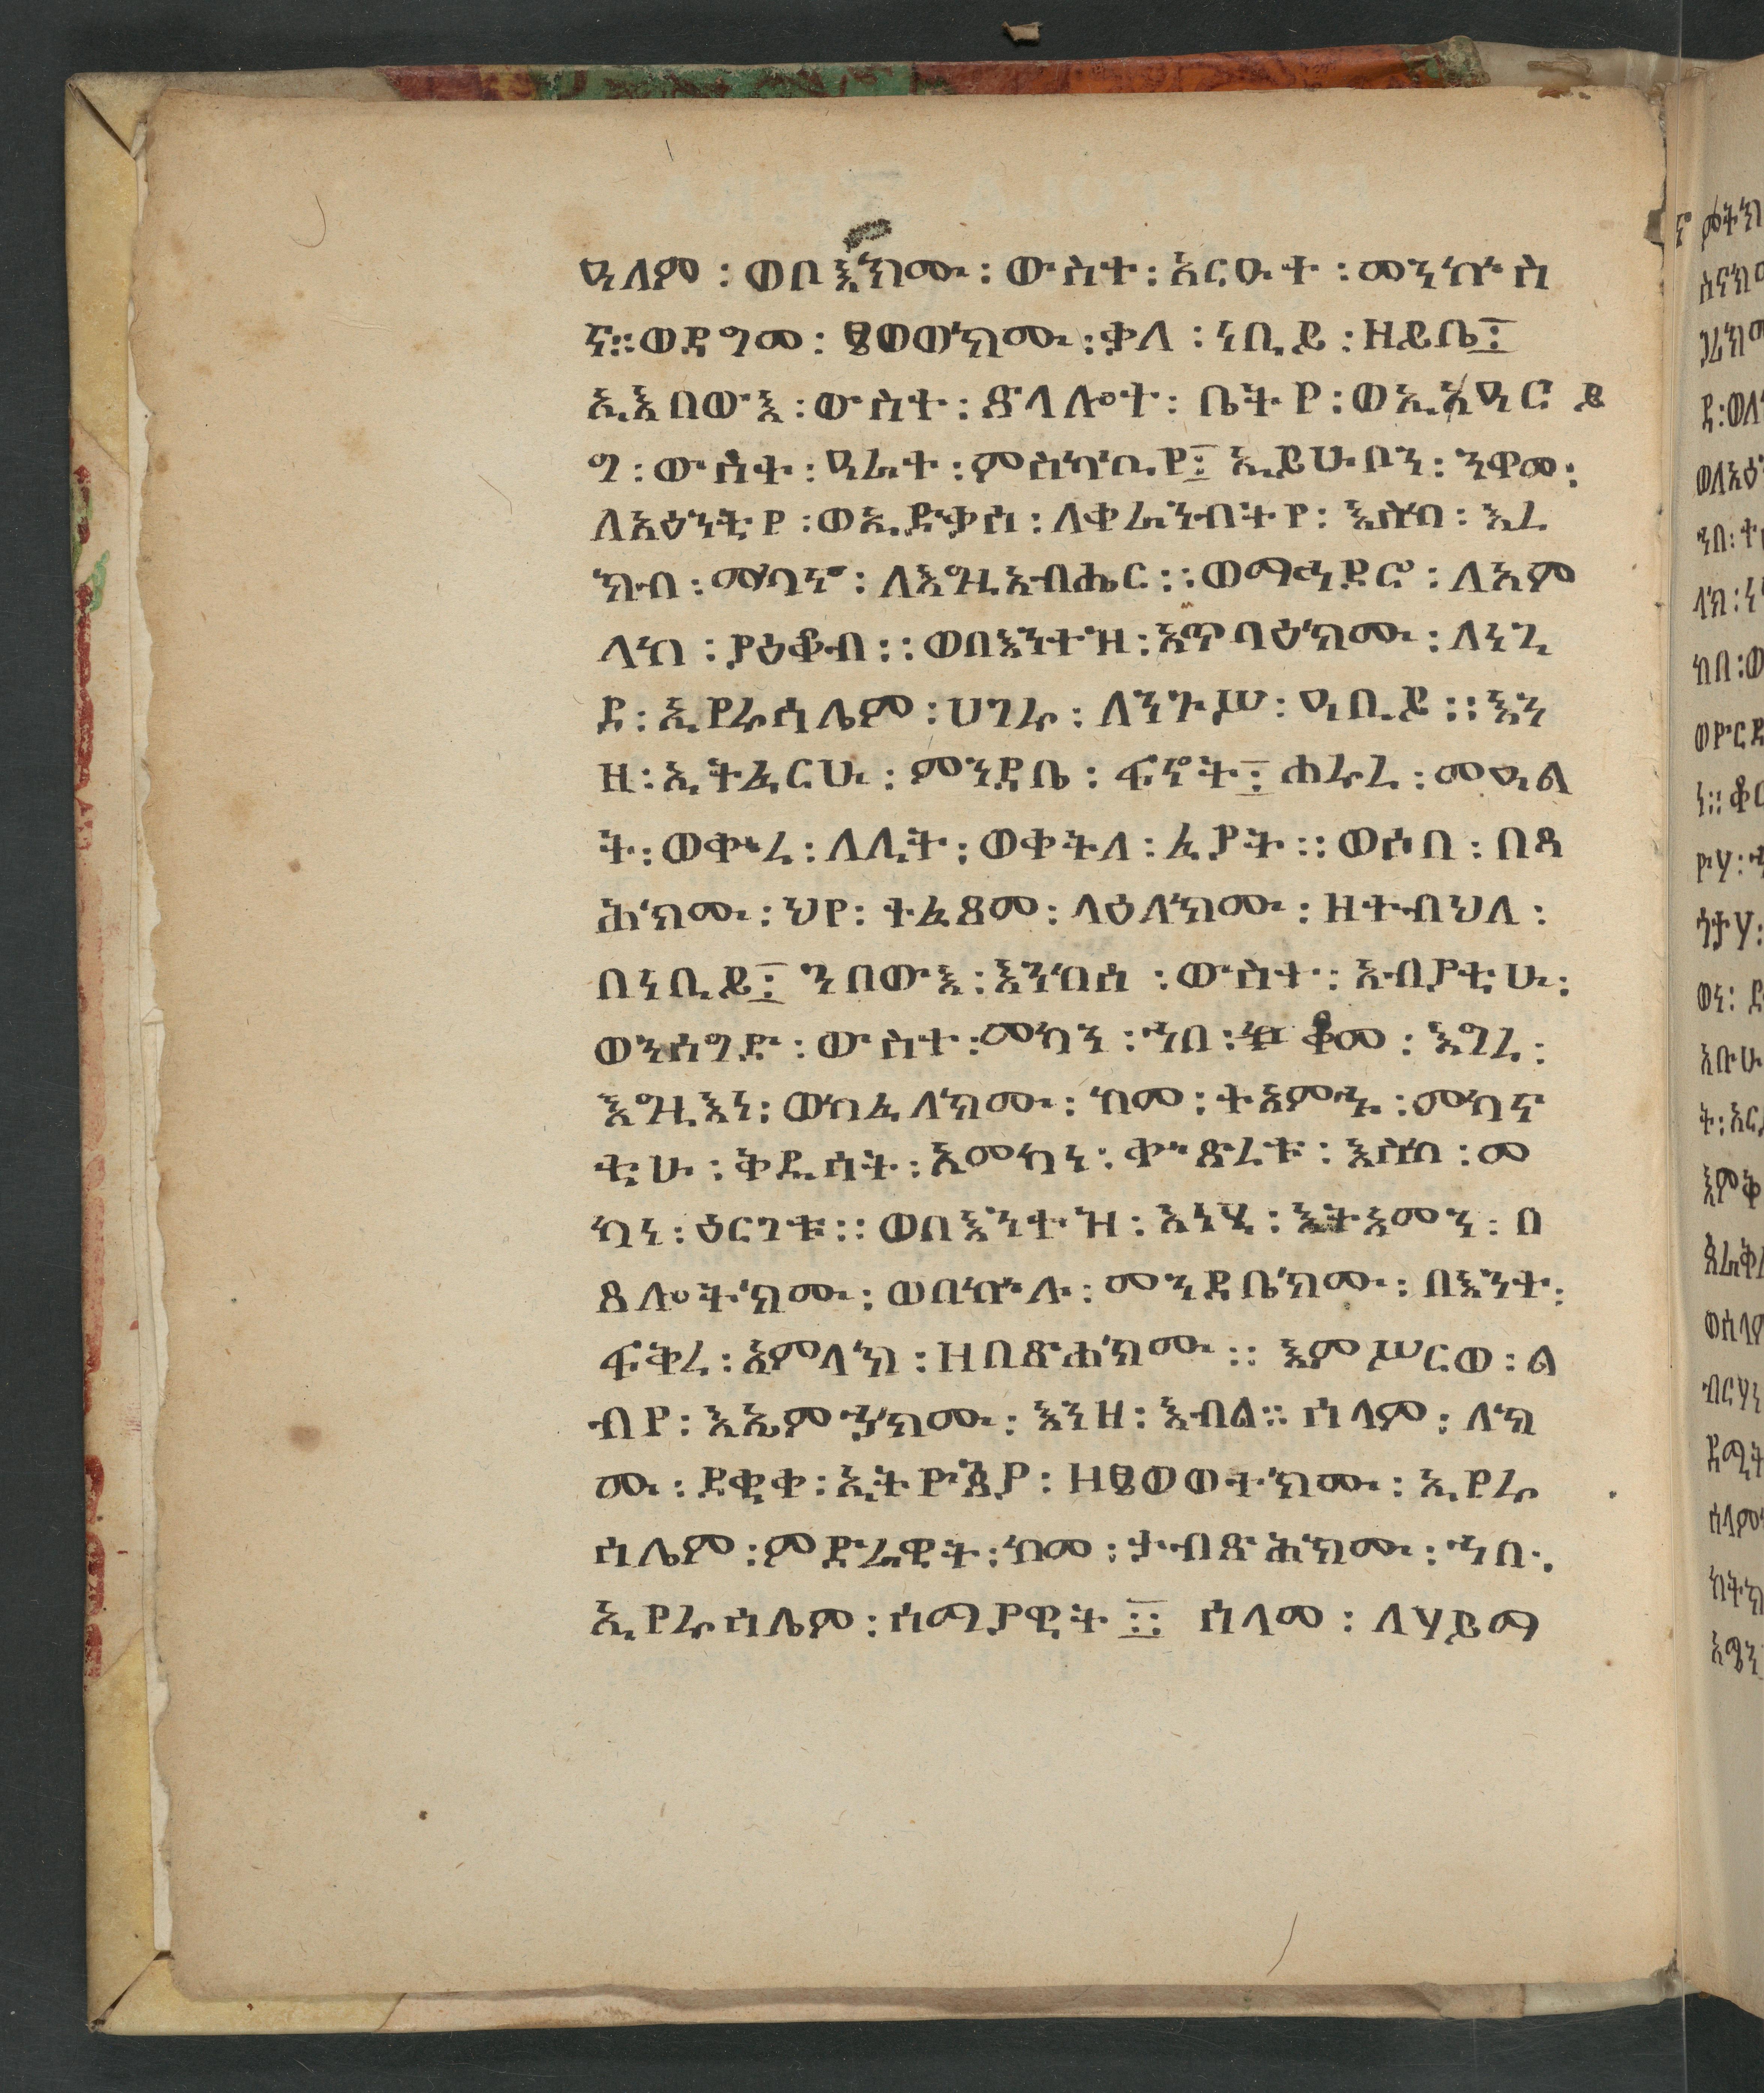 ዓለም ፡ ወቦእክሙ ፡ ውስተ ፡ አርዑተ ፡ መንኩስ
ና ። ወዳግመ ፡ ፄወወክሙ ፡ ቃለ ፡ ነቢይ ፡ ዘይቤ ፤
ኢእበውእ ፡ ውስተ ፡ ጽላሎተ ፡ ቤትየ ፡ ወኢአዓርፎ
ግ ፡ ውስተ ፡ ዓራተ ፡ ምስካቢየ ፤ ኢይሁቦን ፡ ንዋመ ፡
ለአዕንቲየ ፡ ወኢድቃስ ፡ ለቀራንብትየ ፡ እስከ ፡ እረ
ክብ ፡ መካኖ ፡ ለእግዚአብሔር ። ወማኅደሮ ፡ ለአም
ላከ ፡ ያዕቆብ ። ወበእንተዝ ፡ አጥባዕክሙ ፡ ለነጊ
ደ ፡ ኢየሩሳሌም ፡ ሀገሩ ፡ ለንጉሥ ፡ ዓቢይ ። እን
ዘ ፡ ኢትፈርሁ ፡ ምንዳቤ ፡ ፍኖት ፤ ሐሩረ ፡ መዓል
ት ፡ ወቍረ ፡ ሌሊት ፡ ወቀትለ ፡ ፈያት ። ወሶበ ፡ በጻ
ሕክሙ ፡ ህየ ፡ ተፈጸመ ፡ ላዕሌክሙ ፡ ዘተብህለ ፡
በነቢይ ፤ ንበውእ ፡ እንከሰ ፡ ውስተ ፡ አብያቲሁ ፡
ወንሰግድ ፡ ውስተ ፡ መካን ፡ ኀበ ፡ ቆመ ፡ እግረ ፡
እግዚእነ ፡ ወከፈለክሙ ፡ ከመ ፡ ተአምኁ ፡ መካና
ቲሁ ፡ ቅዱሳት ፡ እመካነ ፡ ቍጽረቱ ፡ እስከ ፡ መ
ካነ ፡ ዕርገቱ ። ወበእንተዝ ፡ አነሂ ፡ እትአመን ፡ በ
ጸሎትክሙ ፡ ወበኵሉ ፡ መንዳቤክሙ ፡ በእንተ ፡
ፍቅረ ፡ አምላክ ፡ ዘበጽሐክሙ ። እምሥርወ ፡ ል
ብየ ፡ እኤምኃክሙ ፡ እንዘ ፡ እብል ። ሰላም ፡ ለክ
ሙ ፡ ደቂቀ ፡ ኢትዮጵያ ፡ ዘፄወወተክሙ ፡ ኢየሩ
ሳሌም ፡ ምድራዊት ፡ ከመ ፡ ታብጽሕክሙ ፡ ኀበ ፡
ኢየሩሳሌም ፡ ሰማያዊት ፨ ሰላመ ፡ ለሃይማ